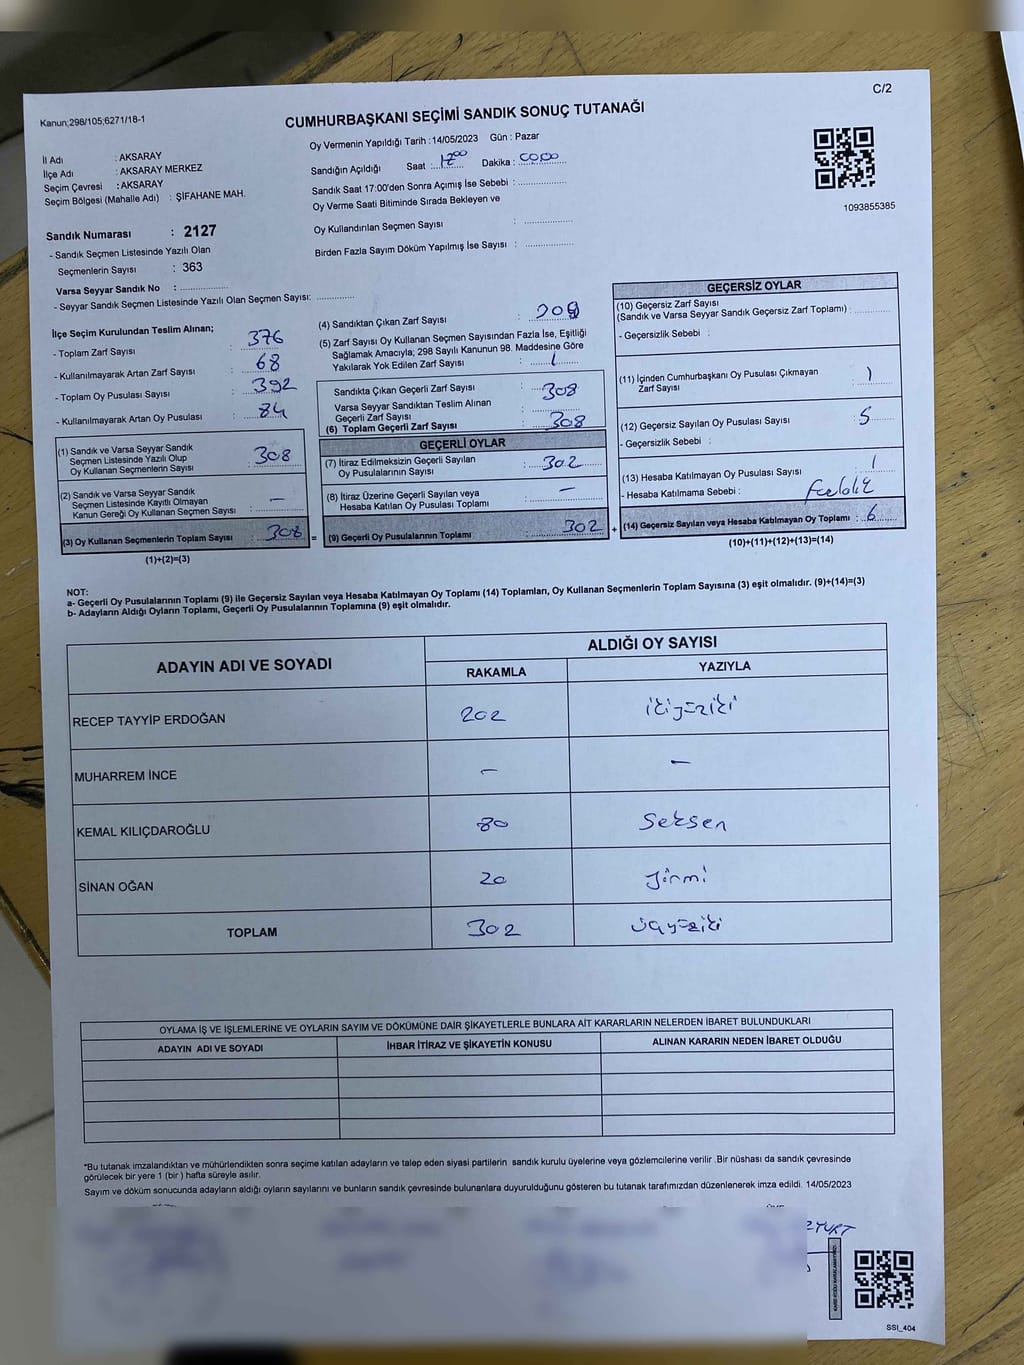 C/2
Kanun;298/105;6271/18-1
CUMHURBAŞKANI SEÇİMİ SANDIK SONUÇ TUTANAĞI
Oy Vermenin Yapıldığı Tarih :14/05/2023 Gün : Pazar
İl Adı : AKSARAY
İlçe Adı : AKSARAY MERKEZ
Seçim Çevresi : AKSARAY
Seçim Bölgesi (Mahalle Adı) : ŞİFAHANE MAH.
Sandığın Açıldığı Saat : 17:00 Dakika :
Sandık Saat 17:00'den Sonra Açımış İse Sebebi :
Oy Verme Saati Bitiminde Sırada Bekleyen ve
Oy Kullandırılan Seçmen Sayısı :
Birden Fazla Sayım Döküm Yapılmış İse Sayısı :
1093855385
Sandık Numarası : 2127
- Sandık Seçmen Listesinde Yazılı Olan
Seçmenlerin Sayısı : 363
Varsa Seyyar Sandık No :
- Seyyar Sandık Seçmen Listesinde Yazılı Olan Seçmen Sayısı:
İlçe Seçim Kurulundan Teslim Alınan;
- Toplam Zarf Sayısı : 376
- Kullanılmayarak Artan Zarf Sayısı : 68
- Toplam Oy Pusulası Sayısı : 392
- Kullanılmayarak Artan Oy Pusulası : 84
(1) Sandık ve Varsa Seyyar Sandık
Seçmen Listesinde Yazılı Olup
Oy Kullanan Seçmenlerin Sayısı : 308
(2) Sandık ve Varsa Seyyar Sandık
Seçmen Listesinde Kayıtlı Olmayan
Kanun Gereği Oy Kullanan Seçmen Sayısı : —
(3) Oy Kullanan Seçmenlerin Toplam Sayısı : 308
(1)+(2)=(3)
(4) Sandıktan Çıkan Zarf Sayısı :
(5) Zarf Sayısı Oy Kullanan Seçmen Sayısından Fazla İse, Eşitliği
Sağlamak Amacıyla; 298 Sayılı Kanunun 98. Maddesine Göre
Yakılarak Yok Edilen Zarf Sayısı : 1
Sandıkta Çıkan Geçerli Zarf Sayısı : 308
Varsa Seyyar Sandıktan Teslim Alınan
Geçerli Zarf Sayısı :
(6) Toplam Geçerli Zarf Sayısı : 308
GEÇERLİ OYLAR
(7) İtiraz Edilmeksizin Geçerli Sayılan
Oy Pusulalarının Sayısı : 302
(8) İtiraz Üzerine Geçerli Sayılan veya
Hesaba Katılan Oy Pusulası Toplamı : —
= (9) Geçerli Oy Pusulalarının Toplamı : 302
GEÇERSİZ OYLAR
(10) Geçersiz Zarf Sayısı
(Sandık ve Varsa Seyyar Sandık Geçersiz Zarf Toplamı) :
- Geçersizlik Sebebi :
(11) İçinden Cumhurbaşkanı Oy Pusulası Çıkmayan
Zarf Sayısı : 1
(12) Geçersiz Sayılan Oy Pusulası Sayısı : 5
- Geçersizlik Sebebi :
(13) Hesaba Katılmayan Oy Pusulası Sayısı : 1
- Hesaba Katılmama Sebebi : Fazlalık
+ (14) Geçersiz Sayılan veya Hesaba Katılmayan Oy Toplamı : 6
(10)+(11)+(12)+(13)=(14)
NOT:
a- Geçerli Oy Pusulalarının Toplamı (9) ile Geçersiz Sayılan veya Hesaba Katılmayan Oy Toplamı (14) Toplamları, Oy Kullanan Seçmenlerin Toplam Sayısına (3) eşit olmalıdır. (9)+(14)=(3)
b- Adayların Aldığı Oyların Toplamı, Geçerli Oy Pusulalarının Toplamına (9) eşit olmalıdır.
ADAYIN ADI VE SOYADI ALDIĞI OY SAYISI
RAKAMLA YAZIYLA
RECEP TAYYİP ERDOĞAN 202 ikiyüziki
MUHARREM İNCE — —
KEMAL KILIÇDAROĞLU 80 Seksen
SİNAN OĞAN 20 Yirmi
TOPLAM 302 üçyüziki
OYLAMA İŞ VE İŞLEMLERİNE VE OYLARIN SAYIM VE DÖKÜMÜNE DAİR ŞİKAYETLERLE BUNLARA AİT KARARLARIN NELERDEN İBARET BULUNDUKLARI
ADAYIN ADI VE SOYADI İHBAR İTİRAZ VE ŞİKAYETİN KONUSU ALINAN KARARIN NEDEN İBARET OLDUĞU
*Bu tutanak imzalandıktan ve mühürlendikten sonra seçime katılan adayların ve talep eden siyasi partilerin sandık kurulu üyelerine veya gözlemcilerine verilir .Bir nüshası da sandık çevresinde
görülecek bir yere 1 (bir ) hafta süreyle asılır.
Sayım ve döküm sonucunda adayların aldığı oyların sayılarını ve bunların sandık çevresinde bulunanlara duyurulduğunu gösteren bu tutanak tarafımızdan düzenlenerek imza edildi. 14/05/2023
SSI_404